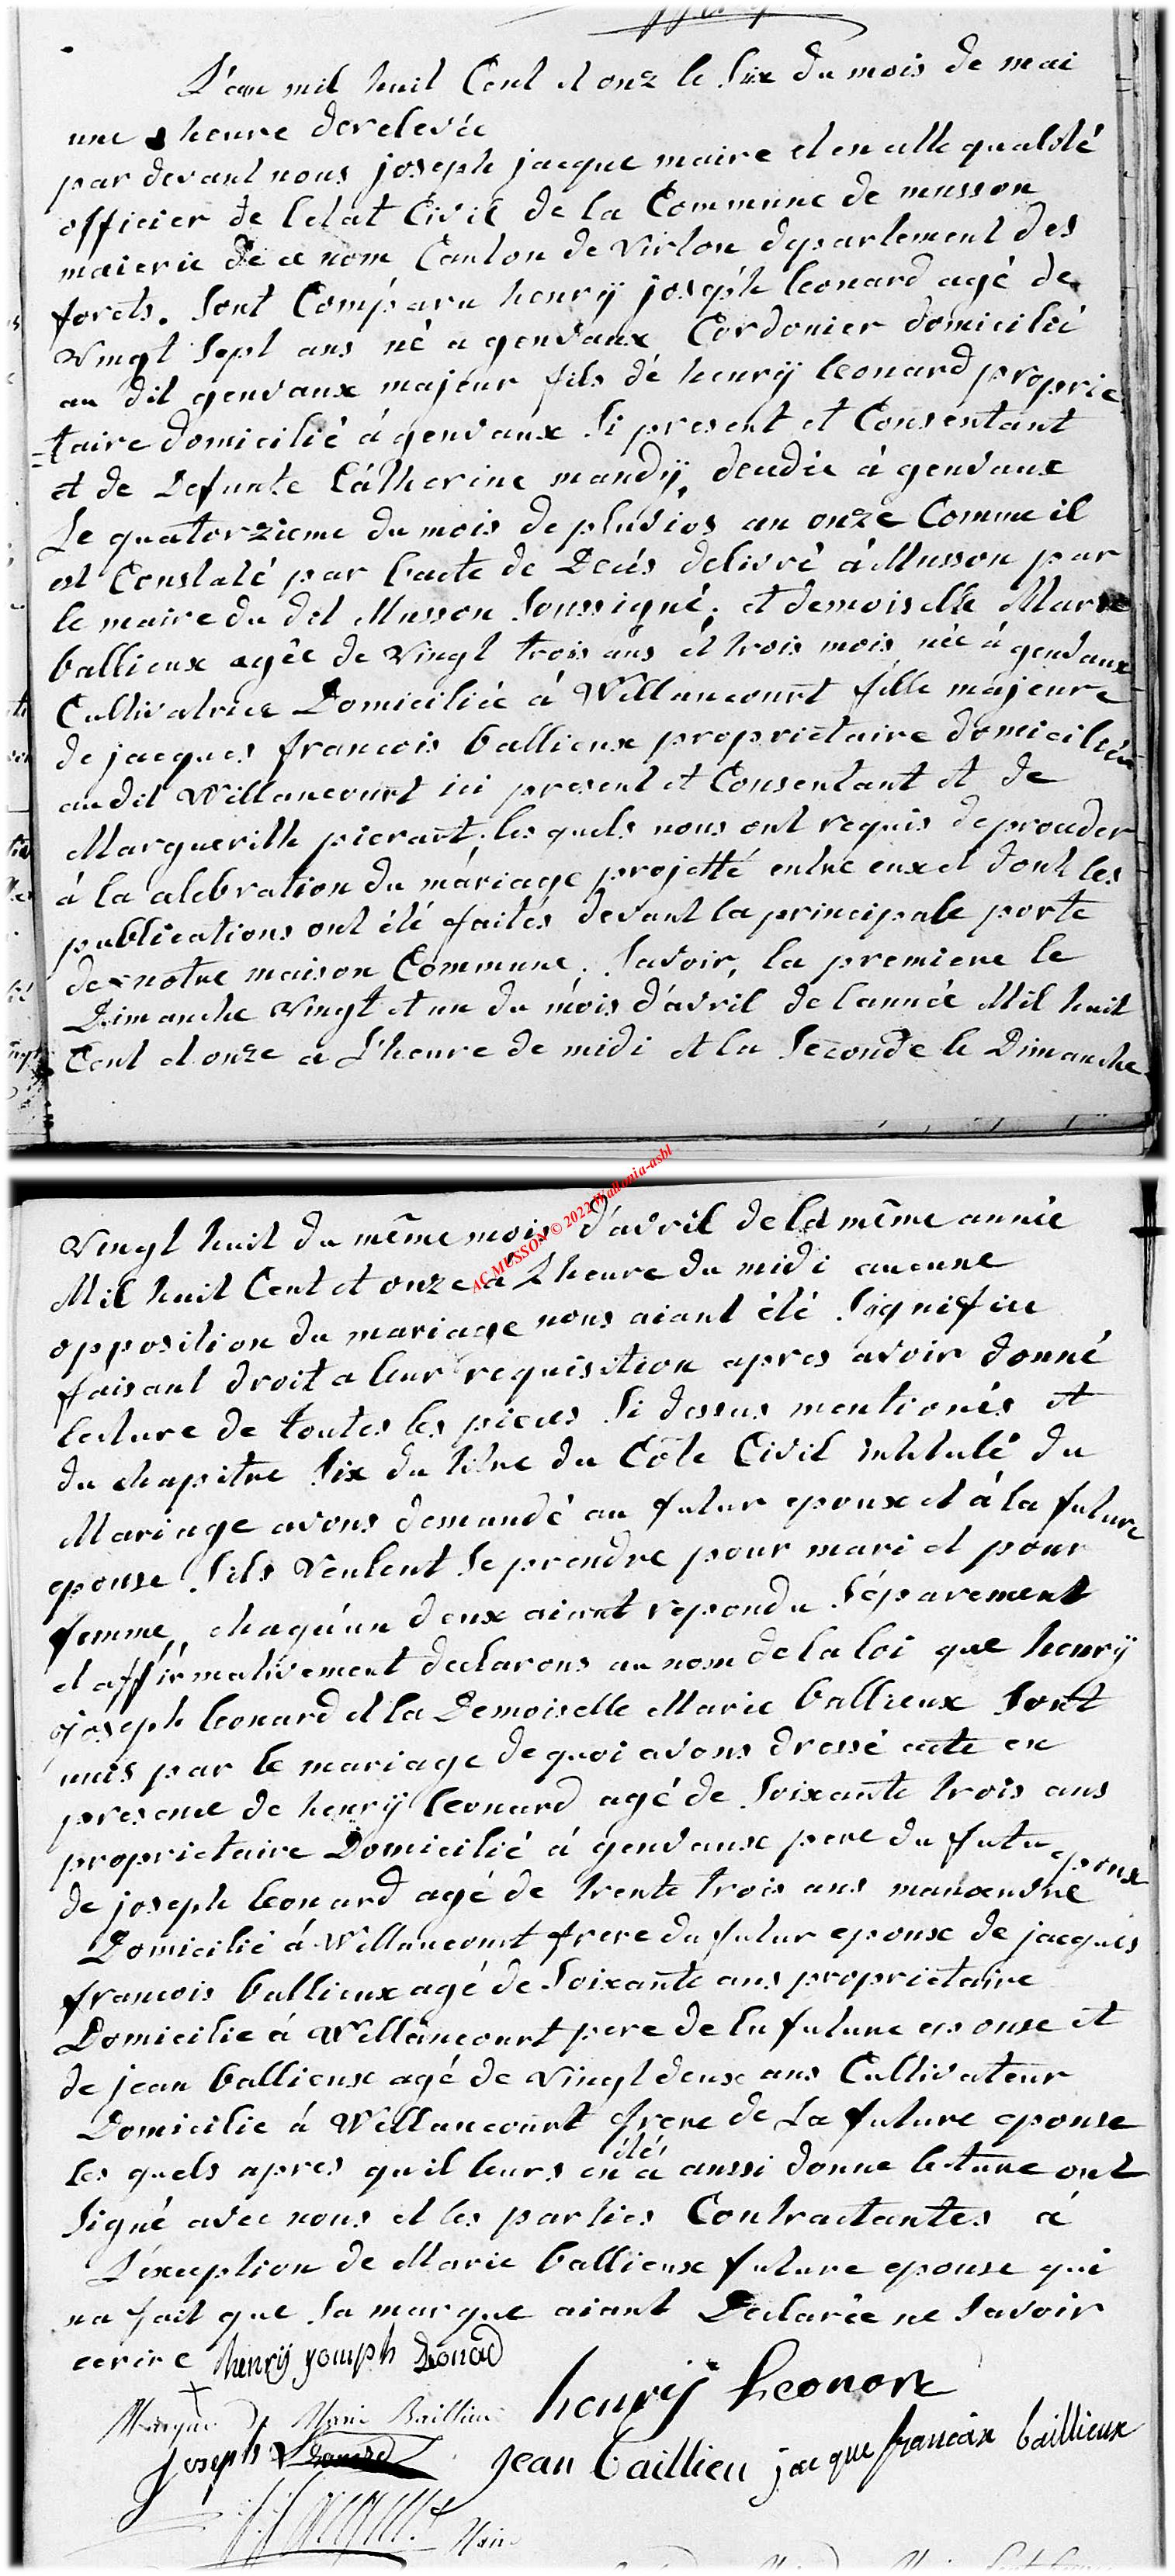 L'an mil huit Cent et onz le Six du mois de mai
une heure derelevée
par devant nous joseph jacque maire et en cette qualité
officier de letat Civil de la Commune de musson
maierie de ce nom Canton de Virton departement des
forets. Sont Comparu henrÿ joseph leonard agé de
Vingt Sept ans né a genvaux Cordonier domicilié
au dit genvaux majeur fils de henrÿ leonard proprie
=taire domicilié á genvaux Si present et Consentant
et de Defunte Cátherine mandÿ, decedie à genvaux
Le quatorzieme du mois de pluvios an onze Comme il
est Constaté par lacte de Decés delivré á Musson par
le maire du dit Musson Soussigné; et demoiselle Marie
ballieux agée de Vingt trois ans et trois mois née à genvaux
Cultivatrice Domiciliée à Willancourt fille majeure
de jacques francois ballieux proprietaire domicilié
audit Willancourt ici present et Consentant et de
Margueritte pierart, les quels nous ont requis de proceder
á la celebration du máriage projetté entre eux et dont les
publications ont été faités devant la principale porte
de notre maison Commune. Savoir, la premiere le
Dimanche Vingt et un du mois d'avril de l'année Mil huit
Cent et onze a L'heure de midi et la Seconde le Dimanche
Vingt huit du même mois d'avril de la même année
Mil huit Cent et onze a L'heure du midi aucune
opposition du mariage nous aiant été Signifiee
faisant droit a leur requisition apres avoir donné
lecture de toutes les pieces Si dessus mentionés et
du chapitre Six du titre du Côde Civil intitulé du
Mariage avons demandé au futur epoux et á la future
epouse Sils Veulent Se prendre pour mari et pour
femme, chaqu'un deux aiant repondu Séparement
et affirmativement declarons au nom de la loi que henrÿ
joseph leonard et la Demoiselle Marie ballieux Sont
unis par le mariage de quoi avons dressé acte en
presence de henrÿ leonard agé de Soixante trois ans
proprietaire Domicilié á genvaux pere du futur epoux
de joseph leonard agé de trente trois ans manœuvre
Domicilié á Willancourt frere du futur epouse de jacques
francois ballieux agé de Soixante ans proprietaire
Domicilie á Willancourt pere de la future epouse et
de jean ballieux agé de Vingt deux ans Cultivateur
Domicilie à Willancourt frere de La future epouse
les quels apres quil leurs en á été aussi donne lecture ont
Signé avec nous et les parties Contractantes á
L'exception de Marie ballieux future epouse qui
na fait que Sa marque aiant Declarée ne Savoir
ecrire henrij joseph Leonard
henrij Leonor
Marque de Marie Baillieu
joseph Leonard
jean baillieu jacque francoix baillieux
J. Jacque Maire
AC MUSSON © 2022 Wallonia-asbl